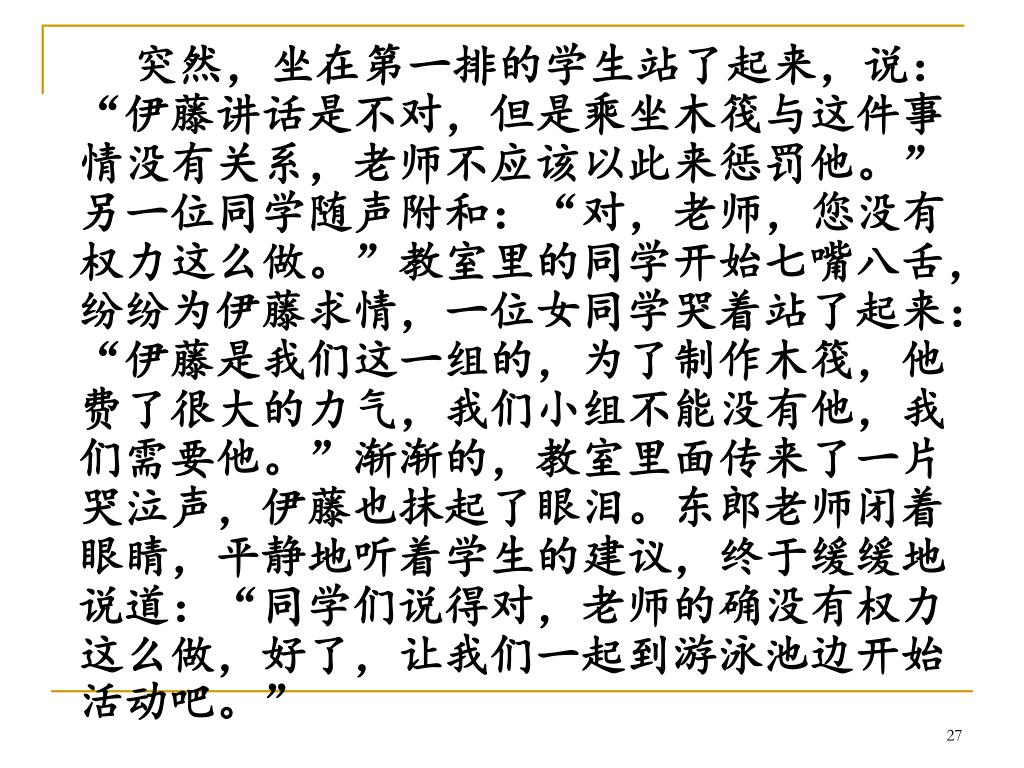 突然，坐在第一排的学生站了起来，说：
“伊藤讲话是不对，但是乘坐木筏与这件事
情没有关系，老师不应该以此来惩罚他。”
另一位同学随声附和：“对，老师，您没有
权力这么做。”教室里的同学开始七嘴八舌，
纷纷为伊藤求情，一位女同学哭着站了起来：
“伊藤是我们这一组的，为了制作木筏，他
费了很大的力气，我们小组不能没有他，我
们需要他。”渐渐的，教室里面传来了一片
哭泣声，伊藤也抹起了眼泪。东郎老师闭着
眼睛，平静地听着学生的建议，终于缓缓地
说道：“同学们说得对，老师的确没有权力
这么做，好了，让我们一起到游泳池边开始
活动吧。”
27